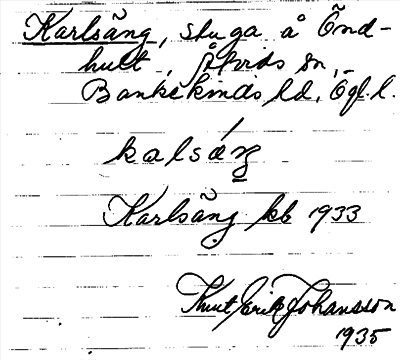 Karlsäng, stuga å Önd-
hult, Åtvids sn,
Bankekinds hd, Ögl.l.
kalsáŋ
Karlsäng kb 1933
Knut Erik Johansson
1935